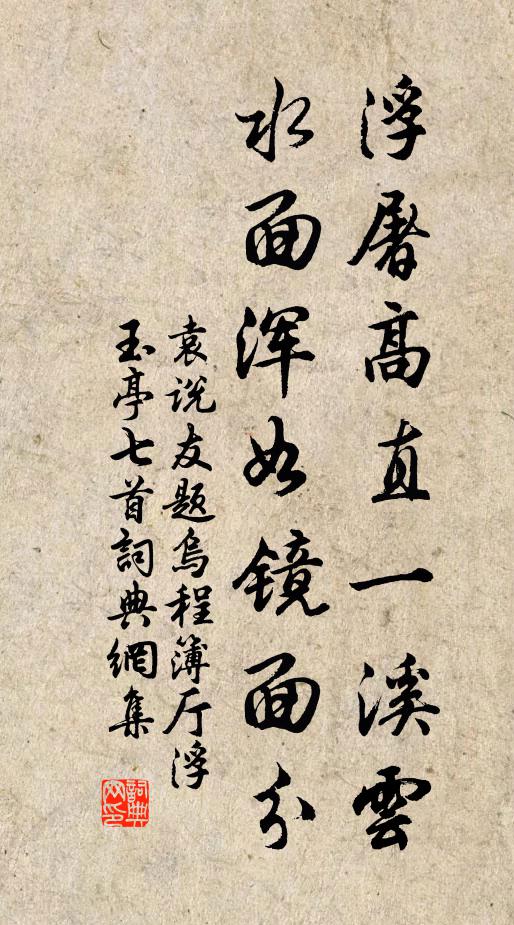 浮屠高直一溪雲
水面浑如镜面分
袁说友题烏程簿厅浮
玉亭七首詞典網集
詞典网印